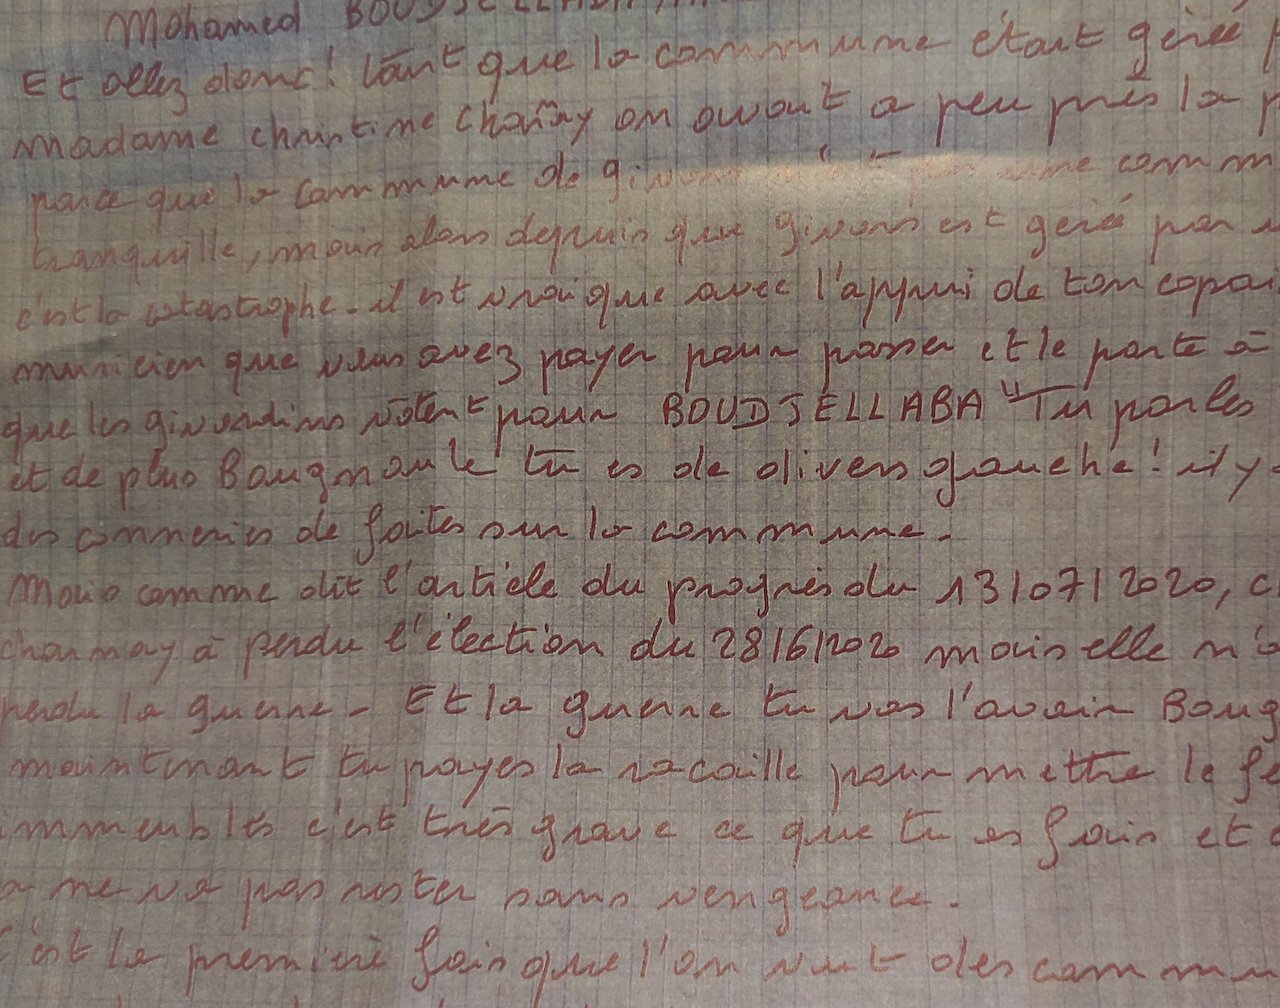 Mohamed BOUDJELLABA
Et allez donc! tant que la commune était gérée
madame christine Charnay on avait a peu près la
parce que la commune de givors n'était pas une comm
tranquille, mais alors depuis que givors est géré par
c'est la catastrophe. il est vrai que avec l'appui de ton copai
municien que vous avez payer pour passer et le porte à
que les givordins votent pour BOUDJELLABA" Tu parles
et de plus Bougnoule tu es de divers gauche! il y
des conneries de faites sur la commune.
Mais comme dit l'article du progrès du 13/07/2020, c
charnay à perdu l'élection du 28/6/2020 mais elle n'a
perdu la guerre. Et la guerre tu vas l'avoir Boug
maintenant tu payes la racaille pour mettre le fe
immeubles c'est très grave ce que tu es fais et
a ne va pas rester sans vengeance.
C'est la premiere fois que l'on veut des commu